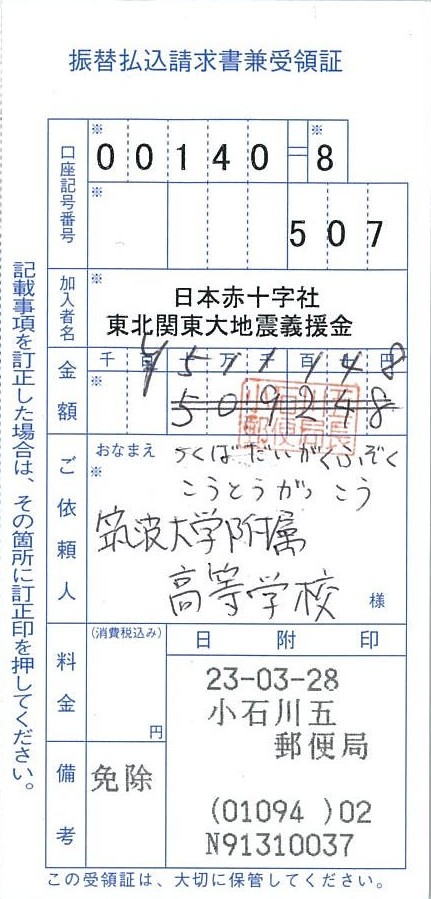 振替払込請求書兼受領証
口座記号番号
※ 00140=※8
※ 507
加入者名
※ 日本赤十字社
東北関東大地震義援金
金額
千百十万千百十円
¥511148
※ 509248
小石川五
郵便局長
ご依頼人
おなまえ つくばだいがくふぞく
※ こうとうがっこう
筑波大学附属
高等学校 様
料金
(消費税込み)
円
備考
免除
日附印
23-03-28
小石川五
郵便局
(01094 )02
N91310037
この受領証は、大切に保管してください。
記載事項を訂正した場合は、その箇所に訂正印を押してください。